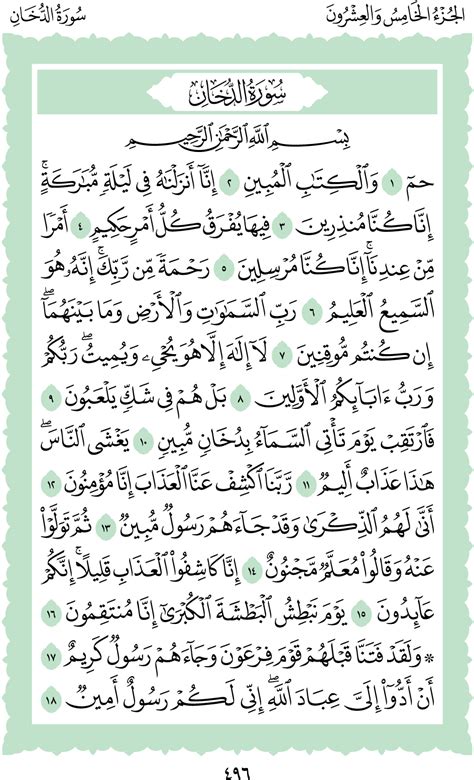 الجُزْءُ الخَامِسُ وَالعِشْرُونَ
سُورَةُ الدُّخَانِ
سُورَةُ الدُّخَانِ
بِسْمِ اللَّهِ الرَّحْمَٰنِ الرَّحِيمِ
حمٓ ١ وَٱلْكِتَٰبِ ٱلْمُبِينِ ٢ إِنَّآ أَنزَلْنَٰهُ فِى لَيْلَةٍ مُّبَٰرَكَةٍۚ
إِنَّا كُنَّا مُنذِرِينَ ٣ فِيهَا يُفْرَقُ كُلُّ أَمْرٍ حَكِيمٍ ٤ أَمْرًا
مِّنْ عِندِنَآۚ إِنَّا كُنَّا مُرْسِلِينَ ٥ رَحْمَةً مِّن رَّبِّكَۚ إِنَّهُۥ هُوَ
ٱلسَّمِيعُ ٱلْعَلِيمُ ٦ رَبِّ ٱلسَّمَٰوَٰتِ وَٱلْأَرْضِ وَمَا بَيْنَهُمَآۖ
إِن كُنتُم مُّوقِنِينَ ٧ لَآ إِلَٰهَ إِلَّا هُوَ يُحْىِۦ وَيُمِيتُۖ رَبُّكُمْ
وَرَبُّ ءَابَآئِكُمُ ٱلْأَوَّلِينَ ٨ بَلْ هُمْ فِى شَكٍّ يَلْعَبُونَ ٩
فَٱرْتَقِبْ يَوْمَ تَأْتِى ٱلسَّمَآءُ بِدُخَانٍ مُّبِينٍ ١٠ يَغْشَى ٱلنَّاسَۖ
هَٰذَا عَذَابٌ أَلِيمٌ ١١ رَّبَّنَا ٱكْشِفْ عَنَّا ٱلْعَذَابَ إِنَّا مُؤْمِنُونَ ١٢
أَنَّىٰ لَهُمُ ٱلذِّكْرَىٰ وَقَدْ جَآءَهُمْ رَسُولٌ مُّبِينٌ ١٣ ثُمَّ تَوَلَّوْا۟
عَنْهُ وَقَالُوا۟ مُعَلَّمٌ مَّجْنُونٌ ١٤ إِنَّا كَاشِفُوا۟ ٱلْعَذَابِ قَلِيلًاۚ إِنَّكُمْ
عَآئِدُونَ ١٥ يَوْمَ نَبْطِشُ ٱلْبَطْشَةَ ٱلْكُبْرَىٰٓ إِنَّا مُنتَقِمُونَ ١٦
۞ وَلَقَدْ فَتَنَّا قَبْلَهُمْ قَوْمَ فِرْعَوْنَ وَجَآءَهُمْ رَسُولٌ كَرِيمٌ ١٧
أَنْ أَدُّوٓا۟ إِلَىَّ عِبَادَ ٱللَّهِۖ إِنِّى لَكُمْ رَسُولٌ أَمِينٌ ١٨
٤٩٦